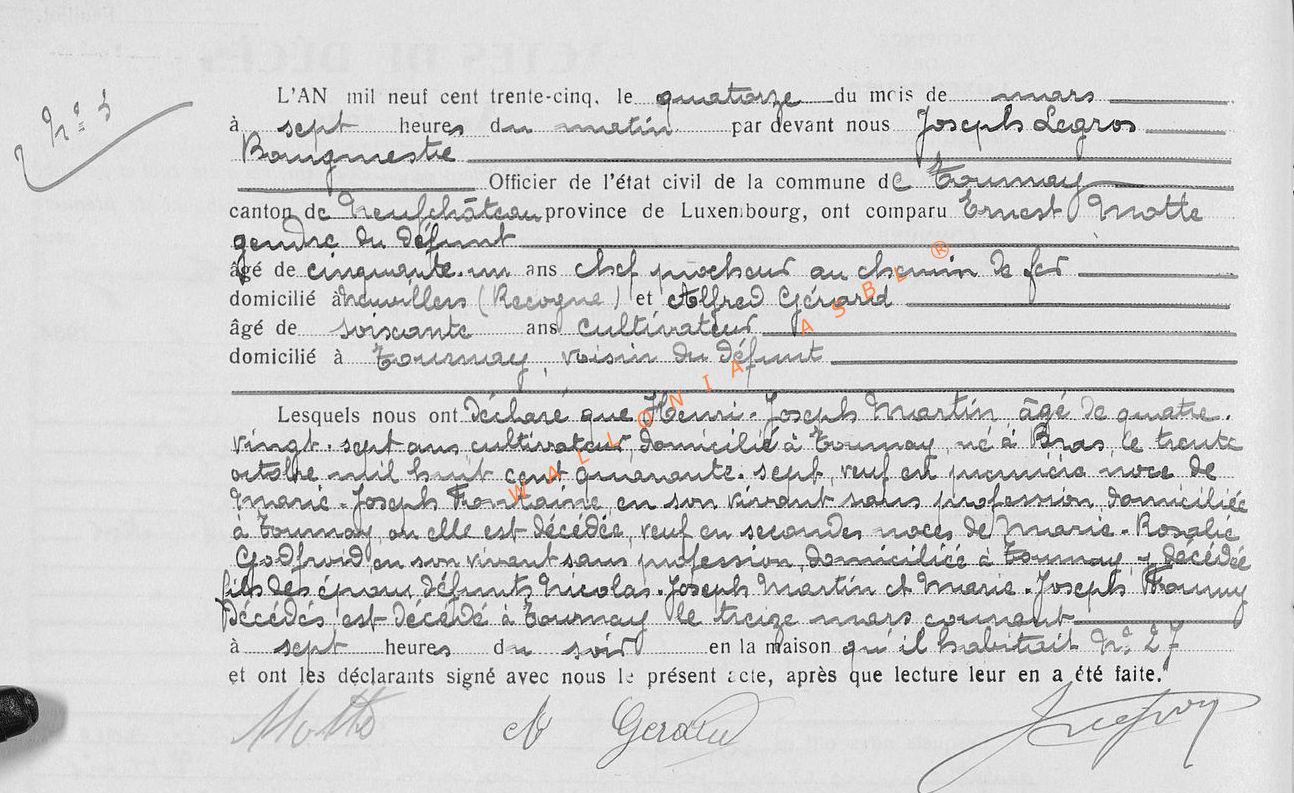 N° 3
L'AN mil neuf cent trente-cinq, le quatorze du mois de mars
à sept heures du matin par devant nous Joseph Legros
Bourgmestre
Officier de l'état civil de la commune de Tournay
canton de Neufchâteau province de Luxembourg, ont comparu Ernest Motte
gendre du défunt
âgé de cinquante-un ans chef piocheur au chemin de fer
domicilié à Neuvillers (Recogne) et Alfred Gérard
âgé de soixante ans cultivateur
domicilié à Tournay, voisin du défunt
Lesquels nous ont déclaré que Henri-Joseph Martin, âgé de quatre-
vingt-sept ans cultivateur, domicilié à Tournay, né à Bras, le trente
octobre mil huit cent quarante-sept, veuf en première noce de
Marie-Joseph Fontaine, en son vivant sans profession, domiciliée
à Tournay, où elle est décédée, veuf en secondes noces de Marie-Rosalie
Godfroid en son vivant sans profession, domiciliée à Tournay, y décédée
fils des époux défunts Nicolas-Joseph Martin et Marie-Joseph
décédés, est décédé à Tournay le treize mars courant
à sept heures du soir en la maison qu'il habitait N° 27
et ont les déclarants signé avec nous le présent acte, après que lecture leur en a été faite.
Motte A Gerard
WALLONIA ASBL ®